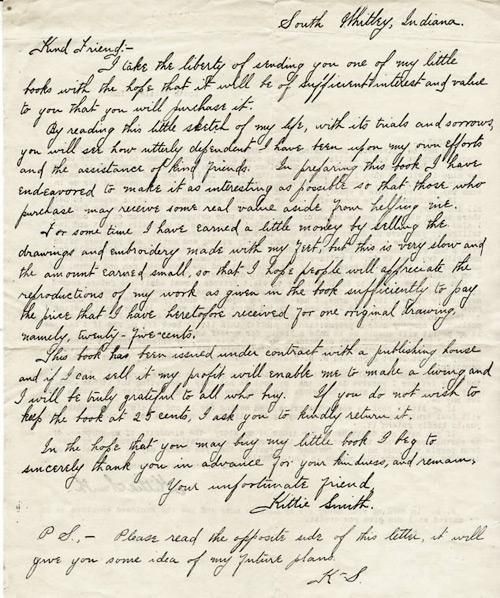 South Whitley, Indiana.
Kind Friend:-
I take the liberty of sending you one of my little
books with the hope that it will be of sufficient interest and value
to you that you will purchase it.
By reading this little sketch of my life, with its trials and sorrows,
you will see how utterly dependent I have been upon my own efforts
and the assistance of kind friends. In preparing this book I have
endeavored to make it as interesting as possible so that those who
purchase may receive some real value aside from helping me.
For some time I have earned a little money by selling the
drawings and embroidery made with my feet, but this is very slow and
the amount earned small, so that I hope people will appreciate the
reproductions of my work as given in the book sufficiently to pay
the price that I have heretofore received for one original drawing,
namely, twenty-five-cents.
This book has been issued under contract with a publishing house
and if I can sell it my profit will enable me to make a living and
I will be truly grateful to all who buy. If you do not wish to
keep the book at 25 cents, I ask you to kindly return it.
In the hope that you may buy my little book I beg to
sincerely thank you in advance for your kindness, and remain,
Your unfortunate friend,
Kittie Smith.
P S.,- Please read the opposite side of this letter, it will
give you some idea of my future plans.
K-S.